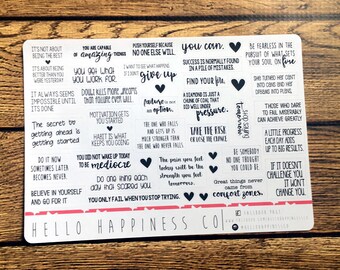 IT'S NOT ABOUT
BEING THE BEST
IT'S ABOUT
BEING BETTER
THAN YOU WERE
YESTERDAY
YOU ARE CAPABLE
of amazing THINGS
PUSH YOURSELF BECAUSE
NO ONE ELSE WILL
you can.
BE FEARLESS IN THE
PURSUIT OF WHAT SETS
YOUR SOUL ON fire
you get what
you work for.
I WANT TO SEE WHAT HAPPENS
IF I DON'T
give up
SUCCESS IS NORMALLY FOUND
IN A PILE OF MISTAKES.
Find your fire.
SHE TURNED HER CAN'TS
INTO CANS AND HER
DREAMS INTO PLANS.
IT ALWAYS SEEMS
IMPOSSIBLE UNTIL
IT'S DONE
DOUBT KILLS MORE DREAMS
THAN FAILURE EVER WILL.
A DIAMOND IS JUST A
CHUNK OF COAL THAT
DID WELL UNDER
pressure.
THOSE WHO DARE
TO FAIL MISERABLY
CAN ACHIEVE GREATLY
The secret to
getting ahead is
getting started
MOTIVATION GETS
YOU STARTED
HABIT IS WHAT
KEEPS YOU GOING
THE ONE WHO FALLS
AND GETS UP IS
MUCH STRONGER THAN
THE ONE WHO NEVER
FELL.
TAKE THE RISK
OR LOSE THE CHANCE.
A LITTLE PROGRESS
EACH DAY ADDS
UP TO BIG RESULTS.
DO IT NOW
SOMETIMES LATER
BECOMES NEVER.
YOU DID NOT WAKE UP TODAY TO
be mediocre
The pain you feel
today will be the
strength you feel
tomorrow.
BE SOMEBODY
NO ONE THOUGHT
YOU COULD BE
IF IT DOESN'T
CHALLENGE YOU
IT WON'T
CHANGE YOU.
Do one thing each
day that scares you
Great things never
came from
comfort zones.
BELIEVE IN YOURSELF
AND GO FOR IT
YOU ONLY FAIL WHEN YOU STOP TRYING.
HELLO HAPPINESS CO